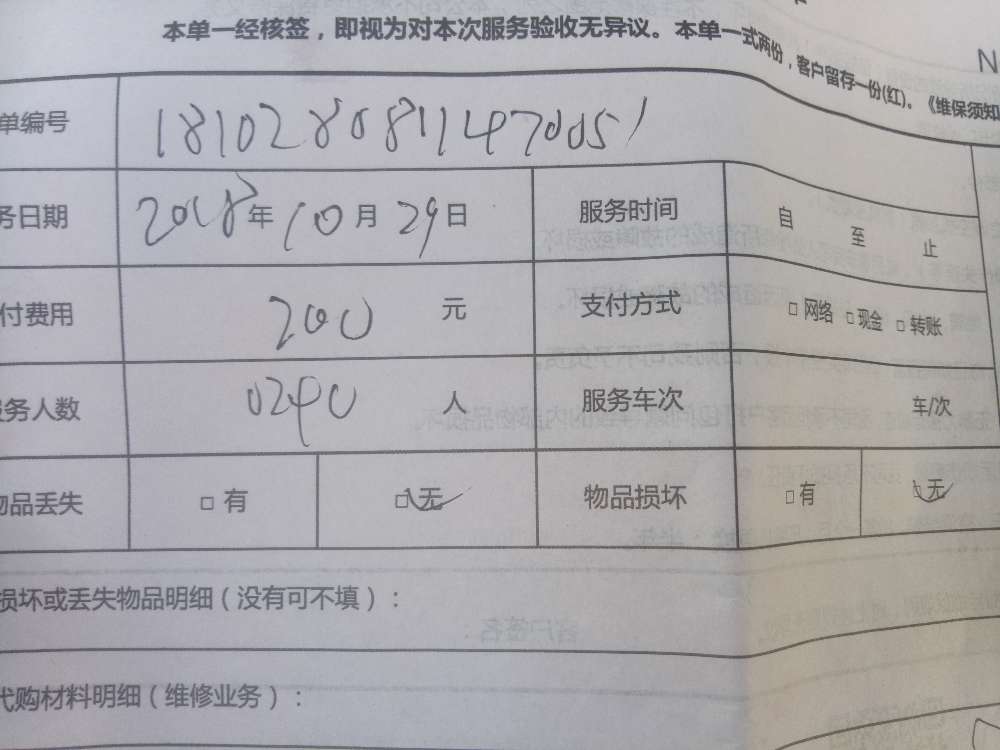 本单一经核签，即视为对本次服务验收无异议。本单一式两份，客户留存一份(红)。《维保须知
单编号 18102880811470051
务日期 2018年10月29日 服务时间 自 至 止
付费用 200 元 支付方式 □ 网络 □ 现金 □ 转账
服务人数 0290 人 服务车次 车/次
物品丢失 □ 有 □ 无 物品损坏 □ 有 □ 无
损坏或丢失物品明细（没有可不填）：
代购材料明细（维修业务）：